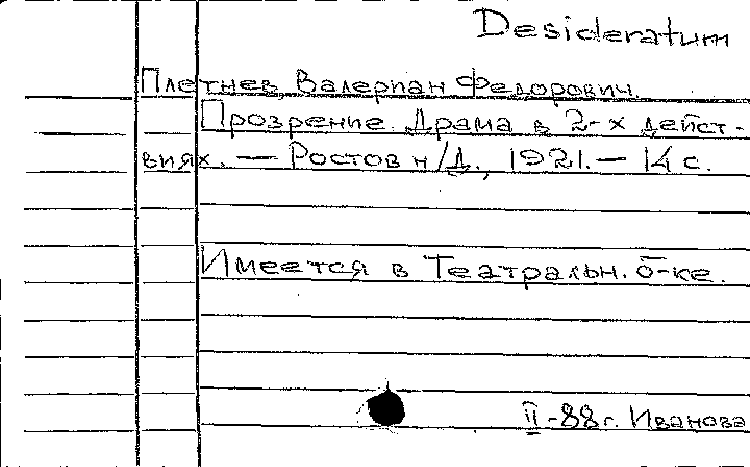 Desideratum
Плетнев, Валериан Федорович.
Прозрение. Драма в 2-х дейст-
виях. — Ростов н/Д., 1921. — 14 с.
Имеется в Театральн. б-ке.
II-88 г. Иванова